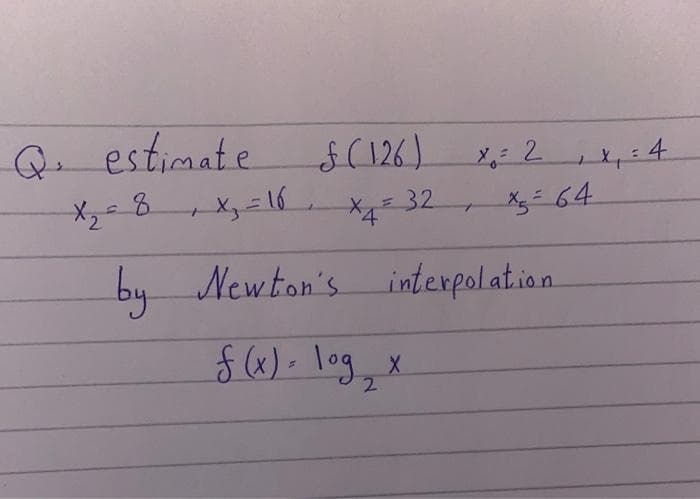 Q. estimate f(126) x₀ = 2 , x₁ = 4
x₂ = 8 , x₃ = 16 , x₄ = 32 , x₅ = 64
by Newton's interpolation
f(x) = log₂ x